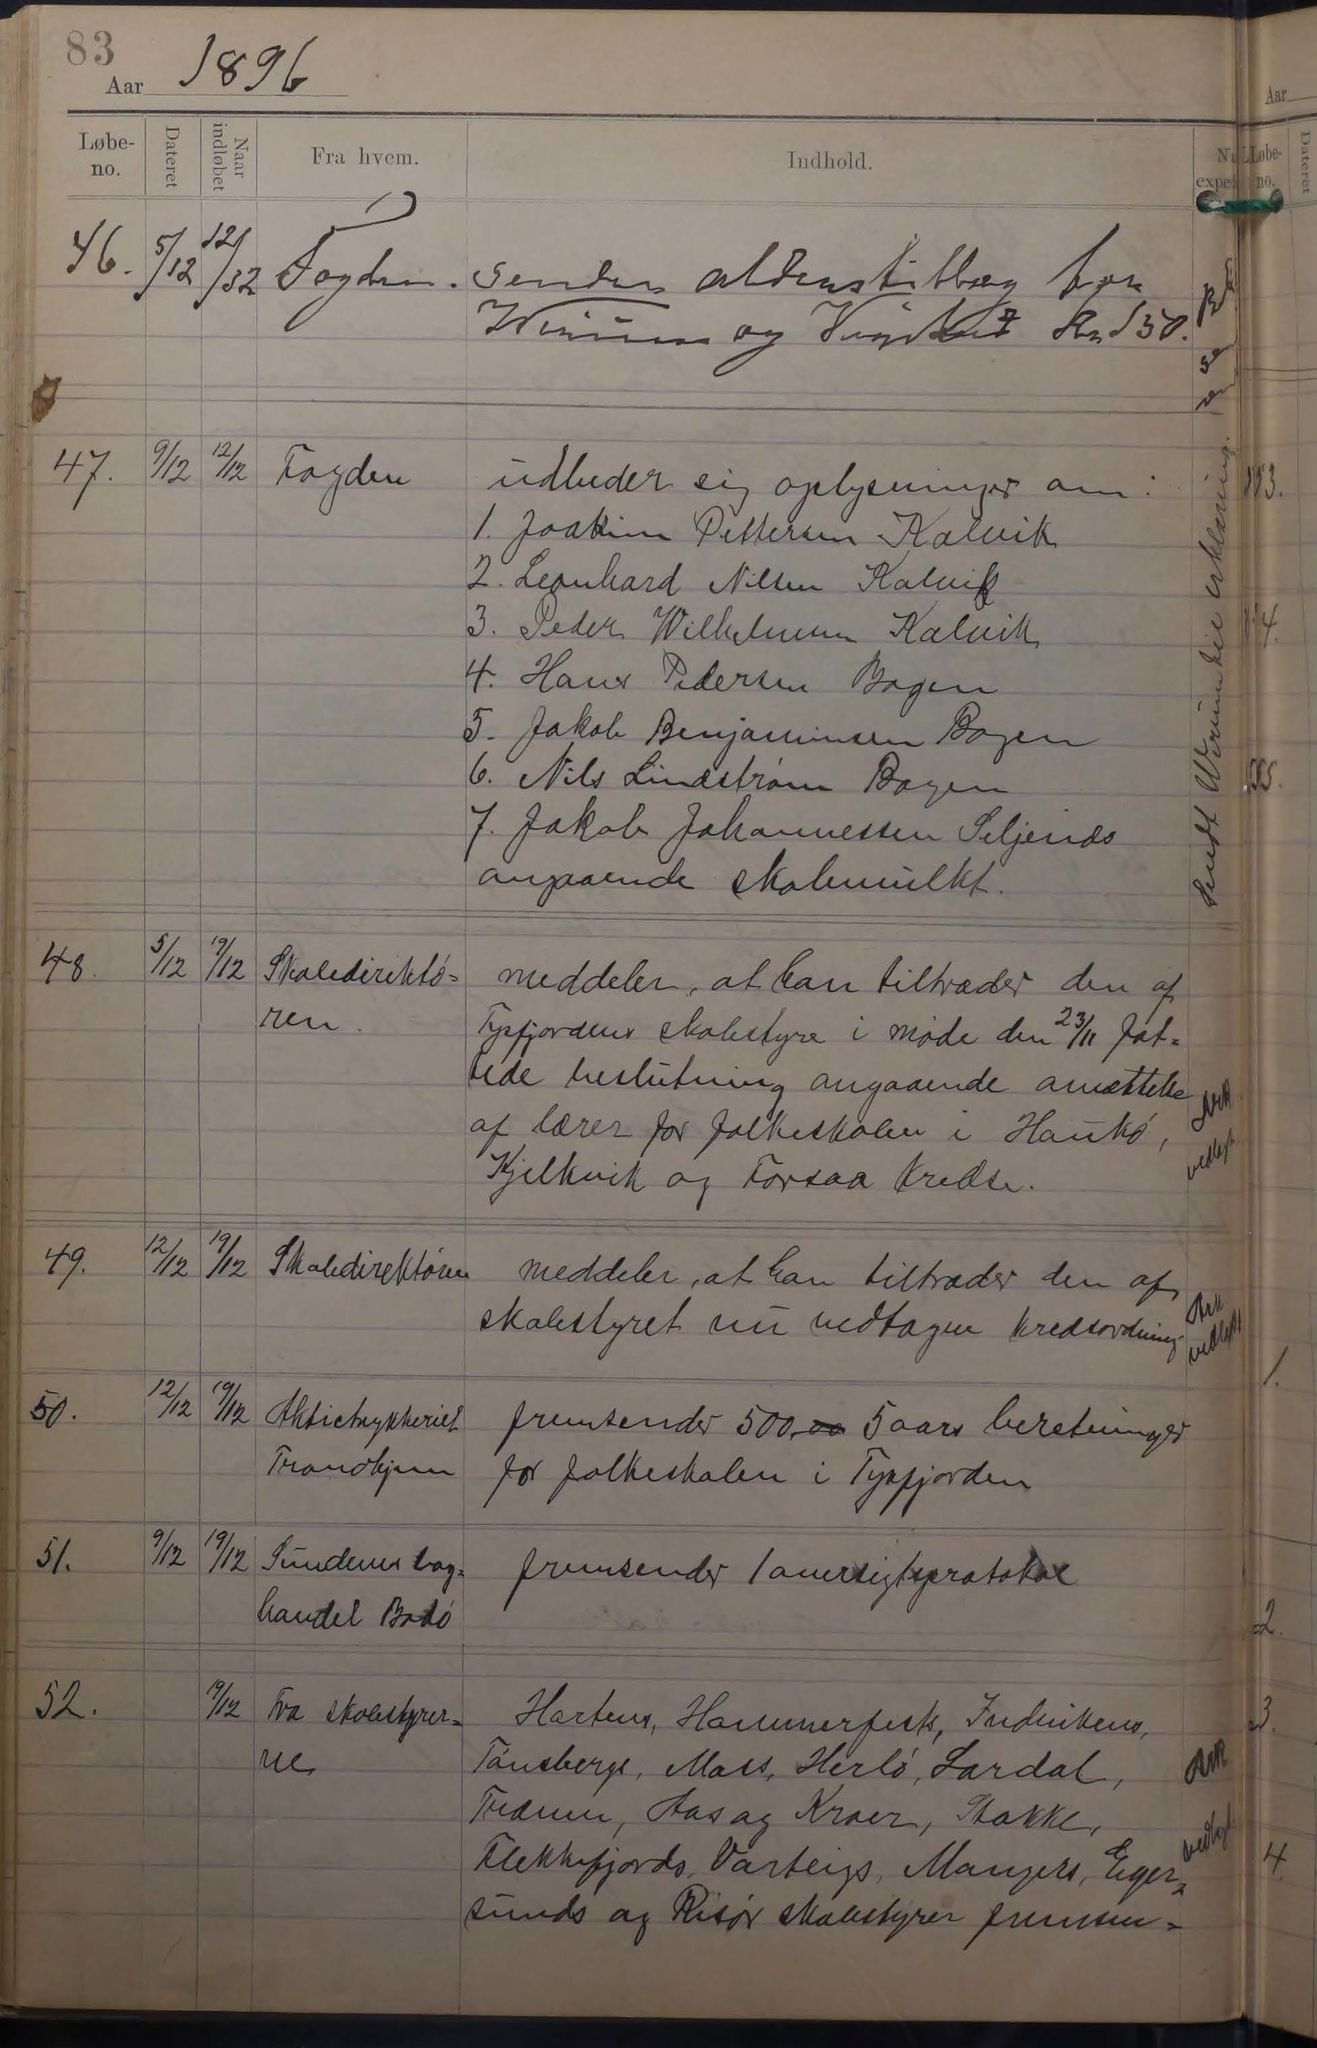 83
Aar 1896
Løbe-no. Dateret Naar indløbet Fra hvem. Indhold.
46. 5/12 12/12 Fogden. sender alderstillæg for
og Kr 150.
47. 9/12 12/12 Fogden udbeder sig oplysninger om:
1. Joakim Pettersen Kalvik
2. Leonhard Nilsen Kalvik
3. Peder Wilhelmsen Kalvik
4. Hans Pedersen Bogen
5. Jakob Benjaminsen Bogen
6. Nils Lindstrøm Bogen
7. Jakob Johannessen Seljenæs
angaaende skolemulkt.
Sendt Wirum til erklæring.
48. 5/12 19/12 Skoledirektø- meddeler, at han tiltræder den af
ren. Tysfjordens skolestyre i møde den 23/11 fat-
tede beslutning angaaende ansættelse
af lærer for folkeskolen i Haukø,
Kjelkvik og Forsaa kredse.
Ark
vedlagt
49. 12/12 19/12 Skoledirektøren meddeler, at han tiltræder den af
skolestyret nu vedtagen kredsordning
Ark
vedlagt
50. 12/12 19/12 Aktietrykkeriet fremsender 500,00 5 aars beretninger
Trondhjem for folkeskolen i Tysfjorden
51. 9/12 19/12 Sundems bog- fremsender 1 oversigtsprotokol
handel Bodø
52. 19/12 Fra skolestyrer- Hortens, Hammerfests, Indvikens,
ne Tønsbergs, Moss, Herlø, Lardal,
Træna, Aas og Kroer, Stokke,
Flekkefjords, Varteigs, Mangers, Eger-
sunds og Risør skolestyrer fremsen-
Ark
vedlagt
Aar
Løbe-no. Dateret
1.
2.
3.
4